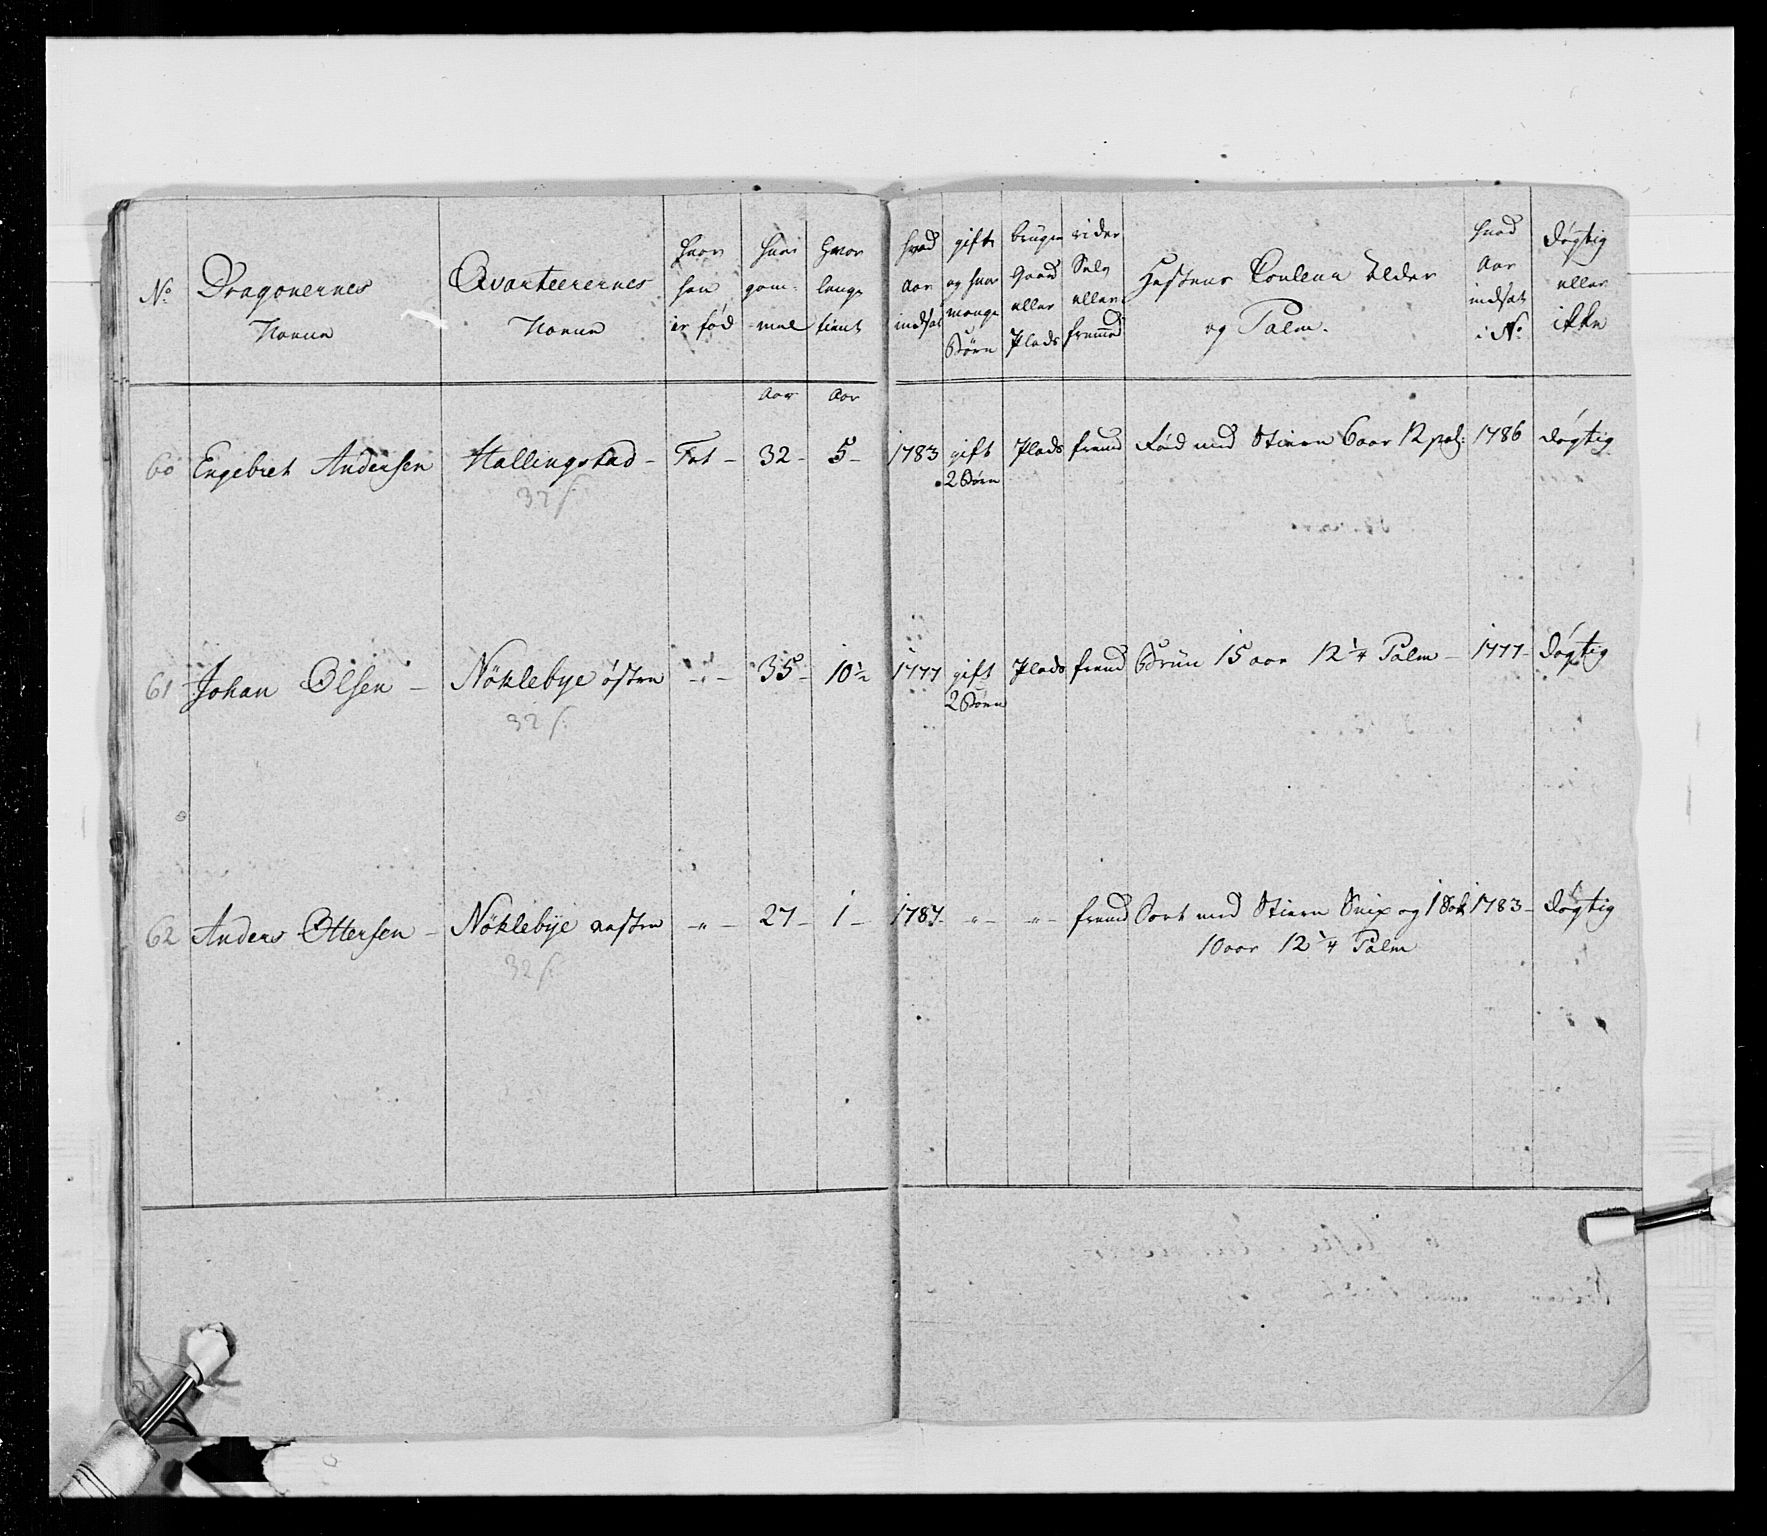 No
Dragonernes
Navne
Qvarteerernes
Navne
hvor
han
er fød
hvor
gam-
mel
hvor
lenge
tient
hvad
aar
indsat
gift
og hvor
mange
Börn
bruger
Gaard
eller
Plads
rider
Selv
eller
fremmed
Hestens Couleur Alder
og Palm.
hvad
Aar
indsat
i No
døgtig
eller
ikke
Aar Aar
60 Engebret Andersen Hallingstad – Tot – 32 – 5 – 1783 gift Plads fremd Rød med Stiern 6 aar 12 pal: 1786 døgtig
2 Börn
32 s.
61 Johan Olsen – Nöklebye östre – " – 35 – 10½ 1777 gift Plads fremd Brun 15 aar 12¼ Palm – 1777 – døgtig
2 Börn
32 s.
62 Anders Ottersen – Nöklebye vestre – " – 27 – 1 – 1787 – " – " – fremd Sort med Stiern Snip og 1 Sok 1783 – døgtig
10 aar 12¼ Palm
32 s.